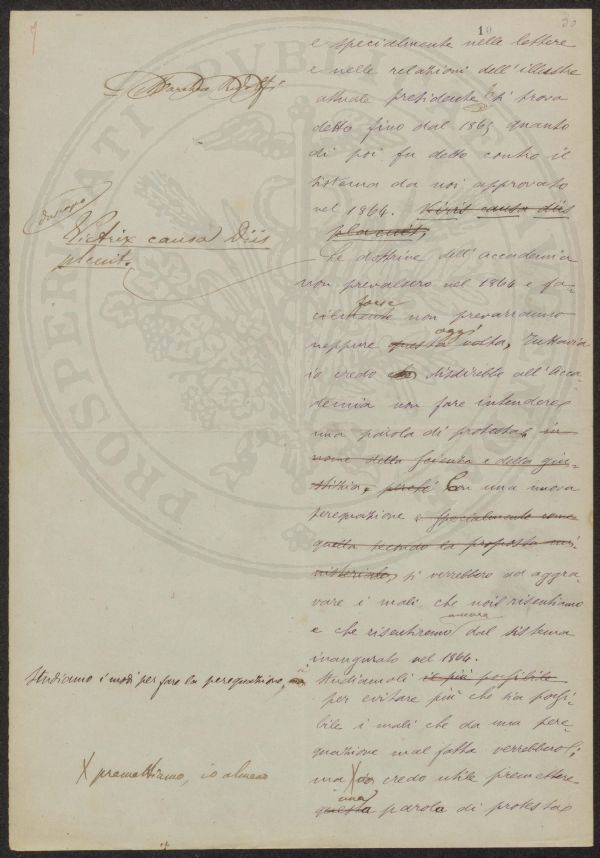 7
10
30
e specialmente nelle lettere
Marchese Ridolfi
e nelle relazioni dell'illustre
attuale presidente si trova
detto fino dal 1863 quanto
di poi fu detto contro il
sistema da noi approvato
nel 1864. Victrix causa diis
placuit,
Victrix causa Diis
placuit.
Le dottrine dell'accademia
non prevalsero nel 1864 e fa-
forse
cilmente non prevarranno
oggi
neppure questa volta, Tuttavia
io credo che disdirebbe all'Acca-
demia non fare intendere
una parola di protesta, in
nome della scienza e della giu-
stizia, perché Con una nuova
perequazione e specialmente come
quella secondo la proposta mi-
nisteriale, si verrebbero ad aggra-
vare i mali che noi risentiamo
ancora
e che risentiremo dal sistema
inaugurato nel 1864.
Studiamo i modi per fare la perequazione,
Studiamoli il più possibile
per evitare più che sia possi-
bile i mali che da una pere-
quazione mal fatta verrebbero;
X premettiamo, io almeno
ma X io credo utile premettere
una
questa parola di protesta
PROSPERITATI PUBLICAE